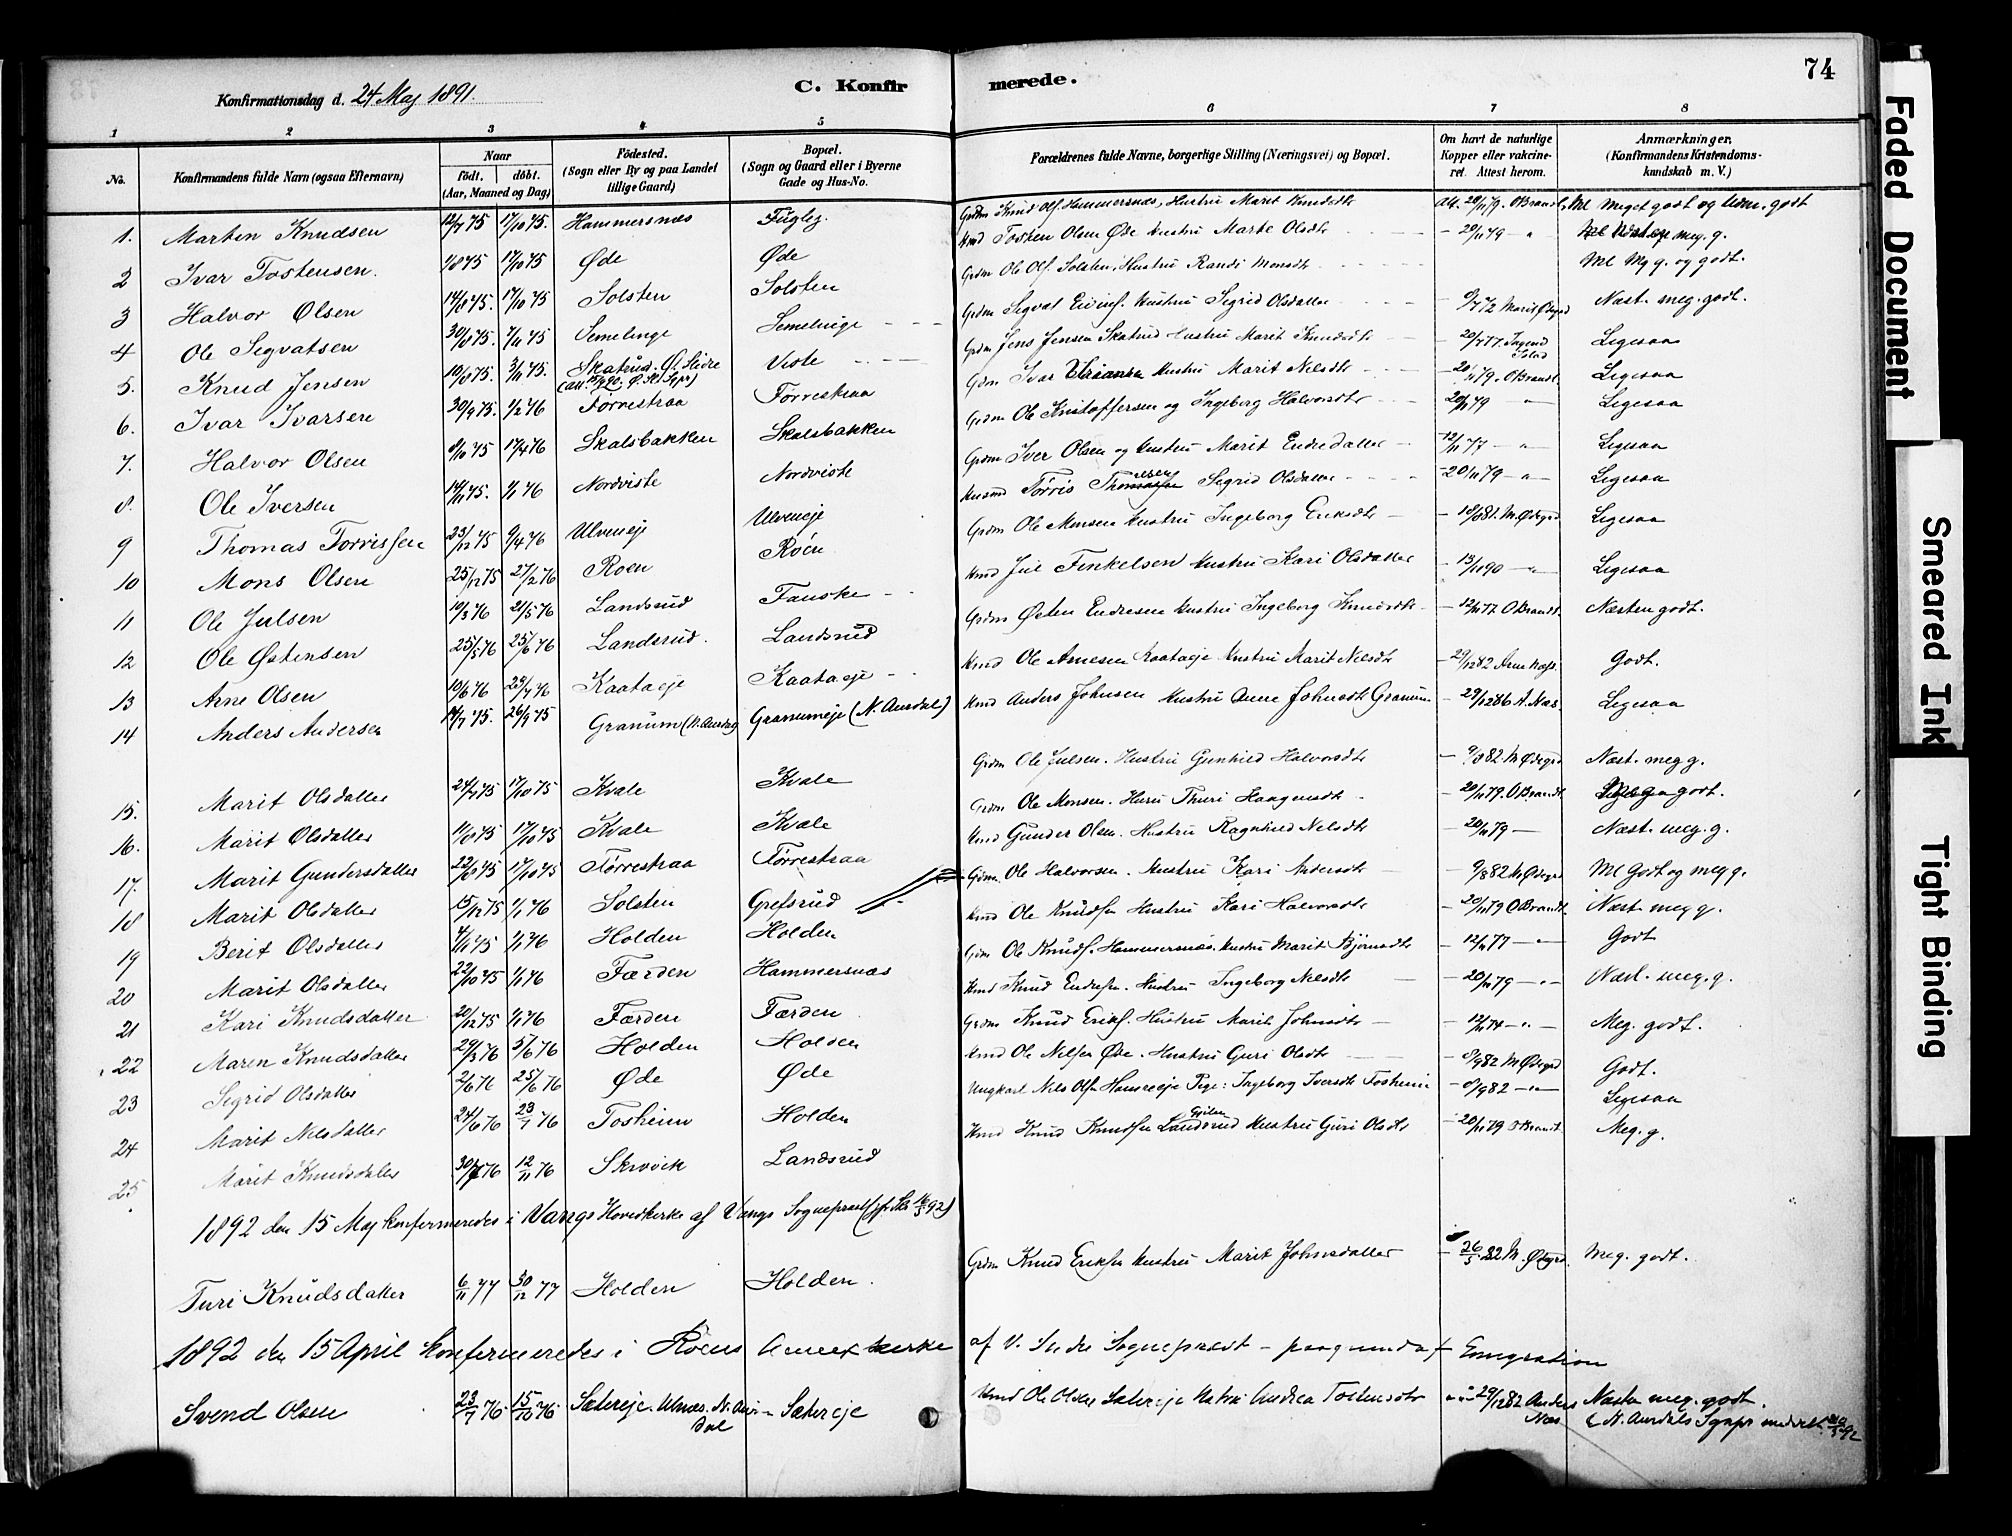 74
Konfirmationsdag d. 24 Maj 1891.
C. Konfir merede.
1 2 3 4 5 6 7 8
No. Konfirmandens fulde Navn (ogsaa Efternavn) Naar födt. döbt. (Aar, Maaned og Dag) Födested. (Sogn eller By og paa Landet tillige Gaard) Bopæl. (Sogn og Gaard eller i Byerne Gade og Hus-No. Forældrenes fulde Navne, borgerlige Stilling (Næringsvei) og Bopæl. Om havt de naturlige Kopper eller vakcineret. Attest herom. Anmærkninger. (Konfirmandens Kristendomskundskab m. V.)
1. Marten Knudsen 12/7 75 17/10 75. Hammersnæs Fuglej. Grdm Knud Olf. Hammersnæs, Hustru Marit Knudsdtr Att. 20/11 79. OBrandt. Ml Meget godt og godt
2 Ivar Tostensen. 1/8 75 17/10 75 Øde Øde Hmd Tosten Olsen Øde Hustru Marte Olsdtr - 20/11 79 - " meg. g.
3 Halvor Olsen 14/8 75. 17/10 75 Solsten Solsten Grdm Ole Olf. Solsten, Hustru Randi Monsdtr Ml Mg g. og godt.
4 Ole Segvatsen 30/8 75. 7/11 75 Semelinge Semelinge Grdm Segvat Hustru Sigrid Olsdatter Marit Ødegrd Næst. meg. godt.
5. Knud Jensen 10/8 75. 3/11 75. Skatrud. Ø. Slidre Viste Grdm Jens Jensen Skatrud Hustru Marit Knudsdtr Ligesaa
6. Ivar Ivarsen 30/9 75. 1/2 76 Førrestraa Førrestraa Gdm Ivar Hustru Marit Nelsdtr - 20/11 79. OBrandt. Ligesaa
7. Halvor Olsen 8/10 75 17/4 76 Skalsbakken Skalsbakken Grdm Ole Kristoffersen og Ingeborg Halvorsdtr 20/11 79 " Ligesaa
8. Ole Iversen 14/11 75. 1/1 76 Nordviste Nordviste Grdm Iver Olsen og Hustru Marit Endredatter - 12/11 77 - " Ligesaa
9 Thomas Torrissen 23/12 75 9/4 76 Ulveneje Ulveneje Husmd Tørris Sigrid Olsdatter - 20/11 79 - " - Ligesaa
10 Mons Olsen 25/12 75 27/2 76 Roen Roen Grdm Ole Monsen Hustru Ingeborg Eriksdtr M. Ødegrd Ligesaa
11 Ole Julsen 10/3 76 21/5 76 Landsrud Fauske Hmd Jul Finkelsen Hustru Kari Olsdatter - 13/11 90 - " - Ligesaa
12 Ole Østensen 25/5 76 25/6 76 Landsrud. Landsrud Grdm Østen Endresen Hustru Ingeborg Knudsdtr - 12/11 77 OBrandt. Næsten godt.
13 Arne Olsen 10/6 76 23/7 76 Kaataeje Kaataeje Hmd Ole Arnesen Kaataeje Hustru Marit Nelsdtr - 29/12 82 Godt.
14 Anders Andersen 14/7 75. 26/9 75 Granum (N. Aurdal) Granumeje (N. Aurdal) Hmd Anders Johnsen Hustru Johnsdtr Granum - 29/12 86 A. Næs. Ligesaa
15. Marit Olsdatter 24/7 75 17/10 75 Kvale Kvale Grdm Ole Julsen. Hustru Gunhild Halvorsdtr - 9/8 82 M Ødegrd Næst. meg g.
16. Marit Olsdatter 11/8 75 17/10 75 Kvale Kvale Grdm Ole Monsen. Husru Thuri Haagensdtr - 20/11 79. OBrandt. godt.
17. Marit Gundersdatter 22/8 75 17/10 75 Førrestraa Førrestraa Hmd Gunder Olsen. Hustru Ragnhild Nelsdtr 20/11 79 - Næst. meg. g.
18 Marit Olsdatter 15/12 75 1/1 76 Solsten Grefsrud Gdm. Ole Halvorsen. Hustru Kari Andersdtr - 9/8 82 M Ødegrd Ml Godt og meg g.
19 Berit Olsdatter 4/11 75 1/1 76 Holden Holden Hmd Ole Knudsen Hustru Kari Halvorsdtr - 20/11 79 OBrandt. Næst. meg g.
20 Marit Olsdatter 22/10 75 1/1 76 Færden Hammersnæs Gdm Ole Knudf. Hammersnæs. Hustru Marit Bjørnsdtr - 12/11 77 - " - Godt
21 Kari Knudsdatter 20/12 75 1/1 76 Færden Færden Hmd Knud Endresen. Hustru Ingeborg Nelsdtr - 20/11 79 - " - Næst. meg. g.
22 Maren Knudsdatter 29/3 76 5/6 76 Holden Holden Grdm Knud Erikf. Hustru Marit Johnsdtr - 12/11 74 - " - Meg. godt.
23 Sigrid Olsdatter 2/6 76 25/6 76 Øde Øde Hmd Ole Nelsen Øde. Hustru Guri Olsdtr - 8/9 82 M Ødegrd Godt.
24 Marit Nelsdatter 24/6 76 23/7 76 Tosheim Holden Ungkarl Nels Olsn Pige: Ingeborg Iversdtr Tosheim - 8/9 82 - " - Ligesaa
25 Marit Knudsdatter 30/7 76 12/11 76 Skrovik Landsrud Hmd Knud Knudsen Landsrud Hustru Guri Olsdtr - 20/11 79 OBrandt. Meg. g.
1892 den 15 Maj konfirmeredes i Vangs Hovedkirke af Vangs Sogneprest (jfr Skr 16/5 92)
Turi Knudsdatter 6/11 77 30/12 77 Holden Holden. Grdm Knud Eriksen Hustru Marit Johnsdatter - 26/5 82 M. Ødegrd. Meg. godt.
1892 den 15 April konfirmeredes i Røens Annexkirke af V. Slidre Sogneprest - paagrunda f Emigration
Svend Olsen 23/7 76. 15/10 76. Sætereje. Ulnæs. N. Aurdal Sætereje Hmd Ole Olsen Sætereje Hustru Andrea Tostensdtr 29/12 82 Anders Næs Næsten meg. godt.
(N. Aurdals Sgnpr meddelt 92
Faded Document
Smeared Ink
Tight Binding